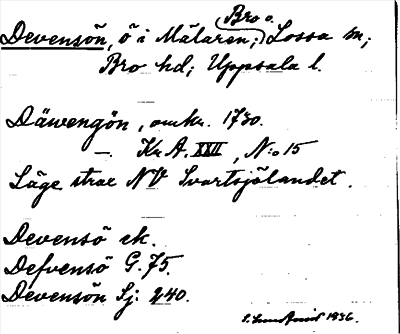 Bro o.
Devensön, ö i Mälaren; Lossa sn;
Bro hd; Uppsala l.
Däwengön, omkr. 1730.
— Kr. A. XXII, N:o 15
Läge strax NV Svartsjölandet.
Devensö ek.
Defvensö G. 75.
Devensön Sj: 240.
1936.